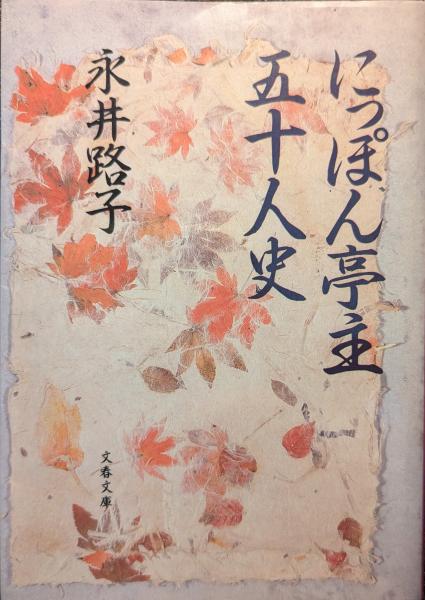 にっぽん亭主
五十人史
永井路子
文春文庫